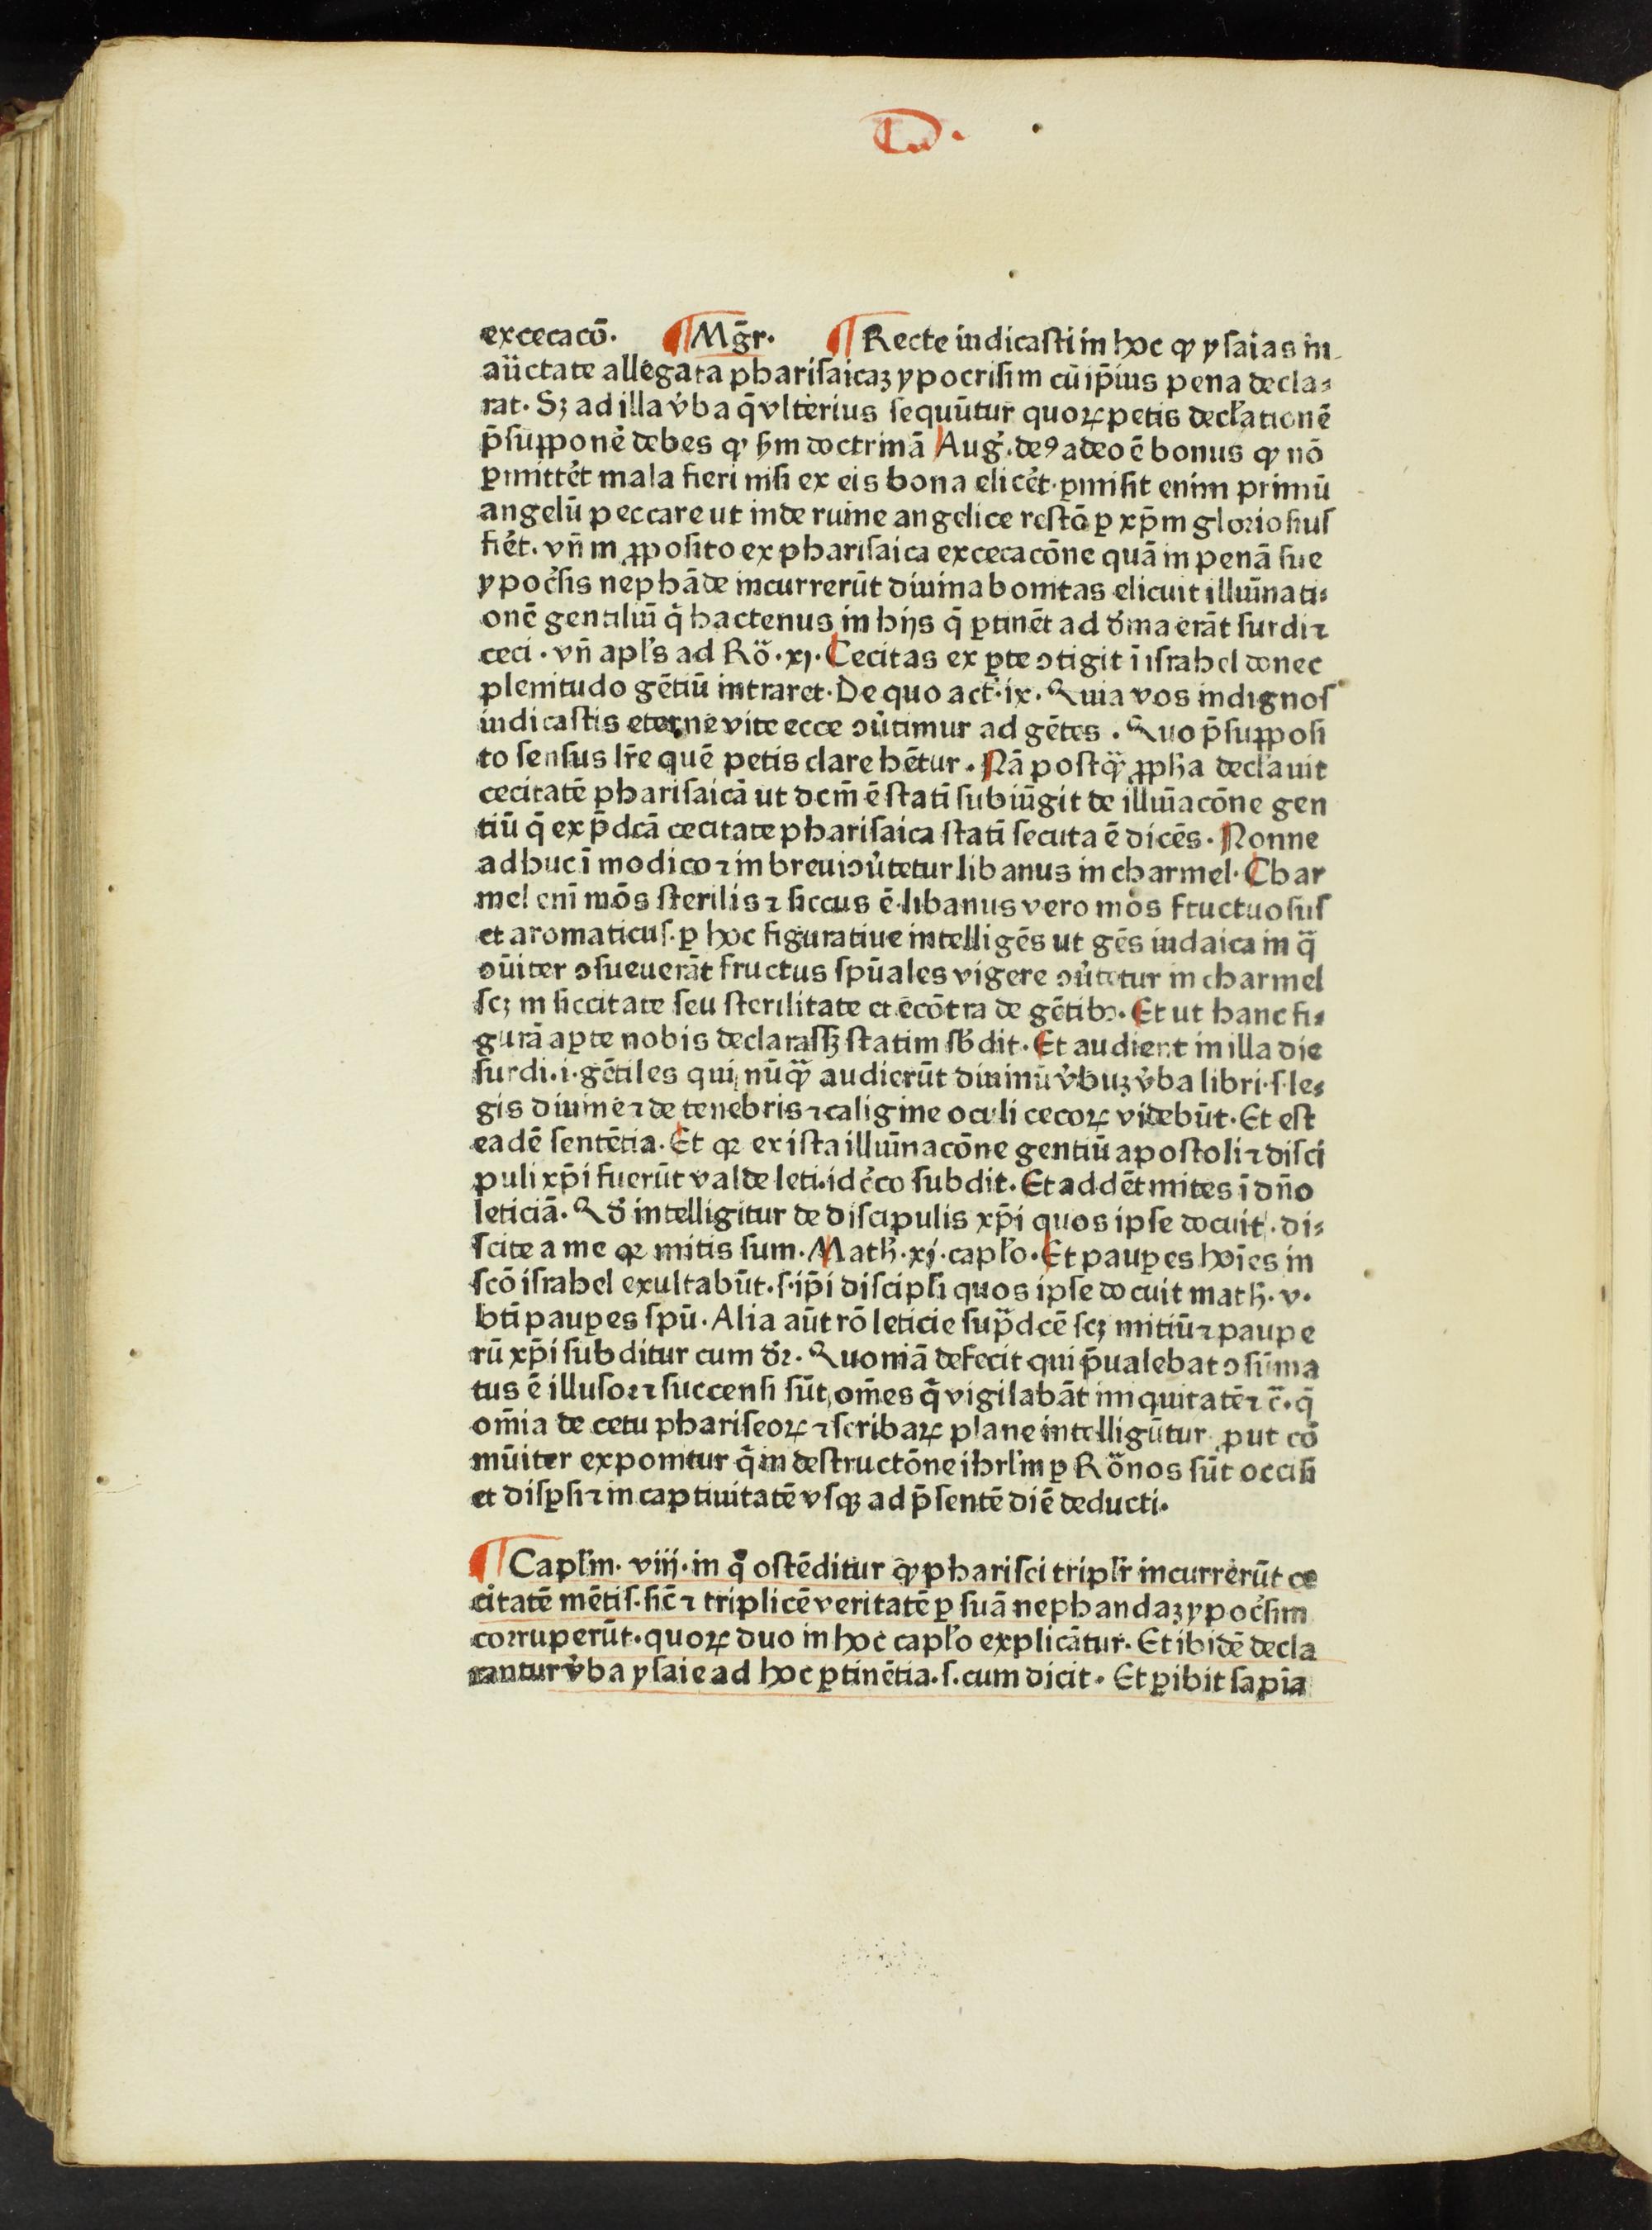 excecacō. ¶ Mg̃r. ¶ Recte iudicasti in hoc ꝙ ysaias in
aūctate allegata pharisaicaꝫ ypocrisim cū ip̄ius pena decla⸗
rat. Sꝫ ad illa v̓ba q̄ vlterius sequūtur quoꝝ petis decl̓ationē
p̄supponē debes ꝙ ẜm doctrinā Aug̓. deꝰ adeo ē bonus ꝙ nō
ꝑmittēt mala fieri nisi ex eis bona elicēt. ꝑmisit enim primū
angelū peccare ut inde ruine angelice restō ꝑ xp̄m gloriosius
fiēt. vn̄ in ꝓposito ex pharisaica excecacōne quā in penā sue
ypoc̓sis nephāde incurrerūt diuina bonitas elicuit illūinati⸗
onē gentiliū q̄ hactenus in hijs q̄ ꝑtinēt ad d̓ina erāt surdi ⁊
ceci. vn̄ apl̓s ad Rö. xj. Cecitas ex ꝑte ↄtigit ī israhel donec
plenitudo gētiū intraret. De quo act̓. ix. Quia vos indignos
iudicastis eterne vite ecce ↄūtimur ad gētes. Quo p̄supposi
to sensus lr̄e quē petis clare hētur. Nā postꝙ̈ ꝓph̄a decl̓auit
cecitatē pharisaicā ut dcm̄ ē statī subiūgit de illūiacōne gen
tiū q̄ ex p̄dcā cecitate pharisaica statī secuta ē dicēs. Nonne
adhuc ī modico ⁊ in breui ↄu̓tetur libanus in charmel. Char
mel enī mōs sterilis ⁊ siccus ē. libanus vero mōs fructuosus
et aromaticus. ꝑ hoc figuratiue intelligēs ut gēs iudaica in q̈
ↄūiter ↄsueuerāt fructus spūales vigere ↄu̓tetur in charmel
scꝫ in siccitate seu sterilitate et ecōtra de gētibꝫ. Et ut hanc fi⸗
gurā aꝑte nobis declarassꝫ statim sb̓dit. Et audient in illa die
surdi. i. gētiles qui nūꝙ̈ audierūt diuinū v̓buꝫ v̓ba libri. s. le⸗
gis diuine ⁊ de tenebris ⁊ caligine oculi cecoꝝ videbūt. Et est
eadē sentētia. Et qꝛ ex ista illūinacōne gentiū apostoli ⁊ disci
puli xp̄i fuerūt valde leti. idc̓co subdit. Et addēt mites ī dn̄o
leticiā. Qd̓ intelligitur de discipulis xp̄i quos ipse docuit. di⸗
scite a me qꝛ mitis sum. Matħ. xj. capl̓o. Et pauꝑes hoīes in
scō israhel exultabūt. s. ip̄i discipl̓i quos ipse docuit matħ. v.
bti̅ pauꝑes spū. Alia aūt rō leticie sup̈dcē scꝫ mitiū ⁊ pauꝑe
rū xp̄i subditur cum d̓r. Quoniā defecit qui p̄ualebat ↄsūma
tus ē illusor ⁊ succensi sūt om̄es q̄ vigilabāt iniquitatē ⁊ c̄. q̄
om̄ia de cetu phariseoꝝ ⁊ scribaꝝ plane intelligūtur ꝓut cō
mūiter exponitur q̄ in destructōne ihrl̓m ꝑ Rönos sūt occisi
et disꝑsi ⁊ in captiuitatē vsqꝫ ad p̄sentē diē deducti.
¶ Capl̓m. viij. in q̊ ostēditur ꝙ pharisei tripl̓r incurrerūt ce
citatē mētis. sic̄ ⁊ triplicē veritatē ꝑ suā nephandaꝫ ypoc̓sim
corruperūt. quoꝝ duo in hoc capl̓o explicātur. Et ibidē decla
rantur v̓ba ysaie ad hoc ꝑtinētia. s. cum dicit. Et ꝑibit sapīa